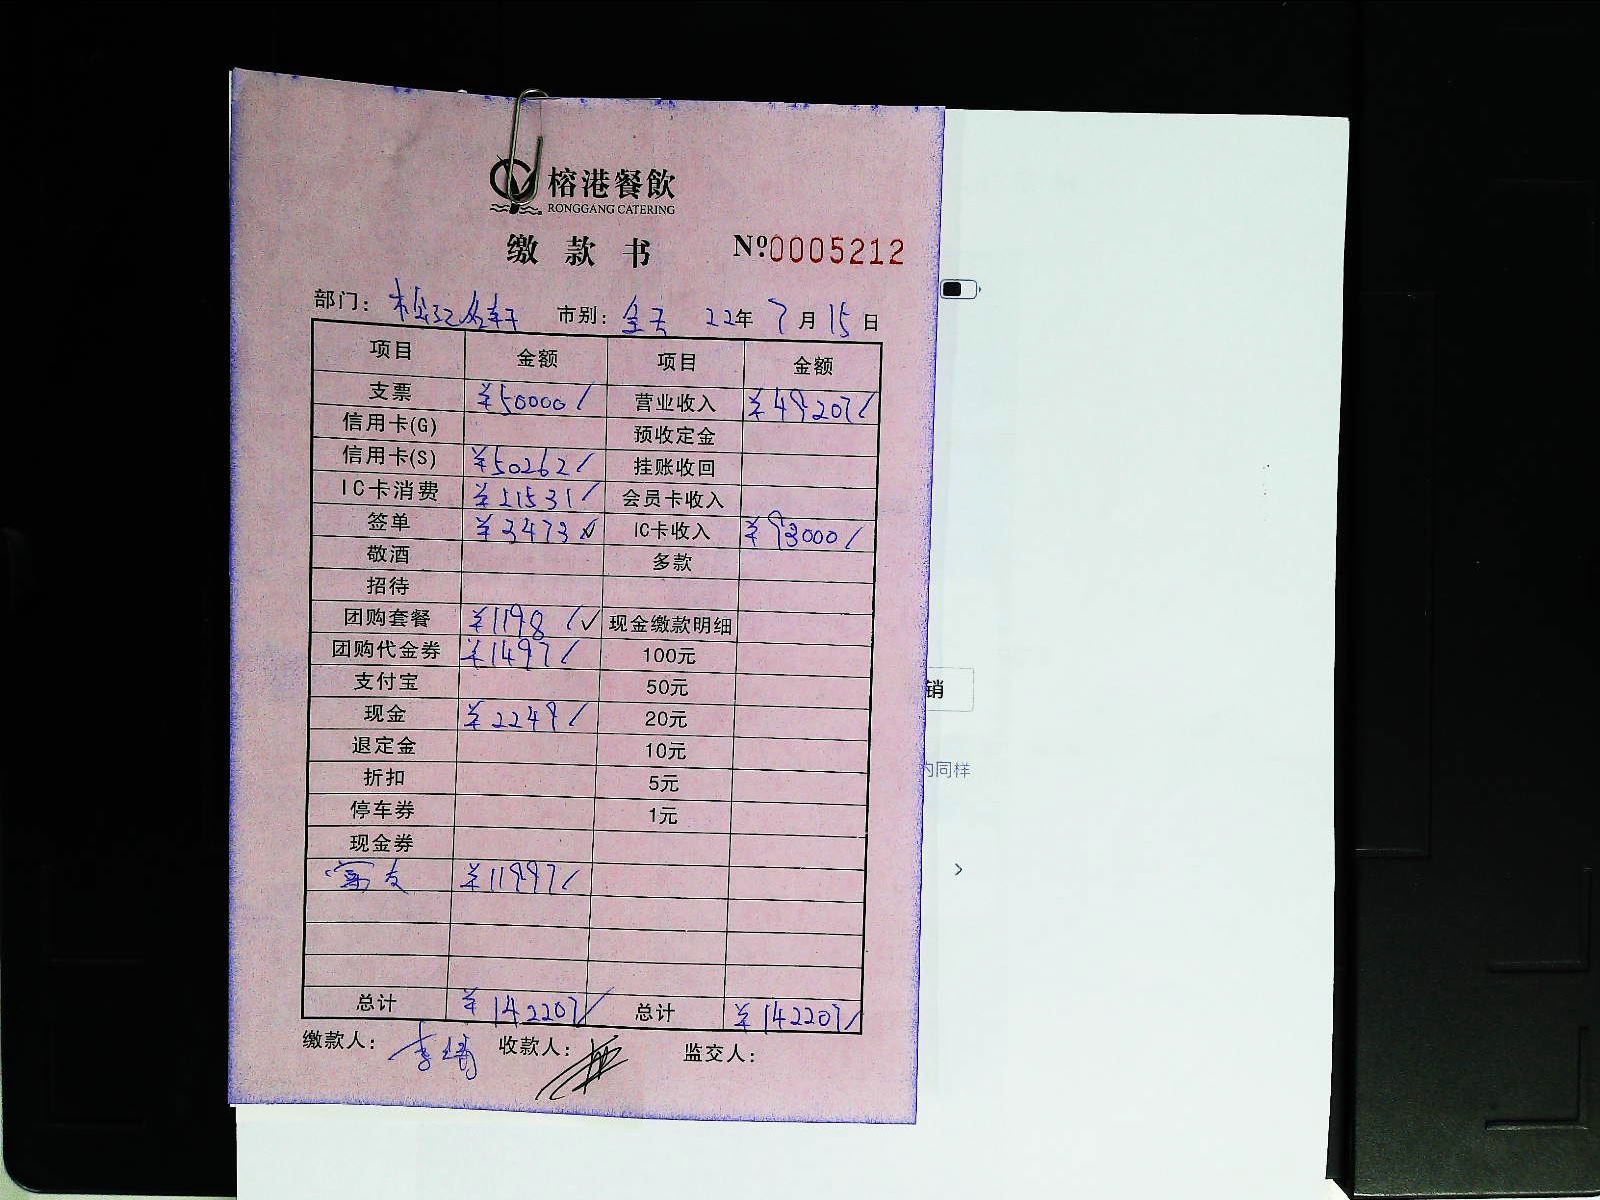 榕港餐飲
RONGGANG CATERING
缴款书 №0005212
部门：松江名轩 市别：全天 22年7月15日
项目 金额 项目 金额
支票 ¥50000/ 营业收入 ¥49207/
信用卡(G) 预收定金
信用卡(S) ¥50262/ 挂账收回
IC卡消费 ¥21531/ 会员卡收入
签单 ¥3473✓ IC卡收入 ¥93000/
敬酒 多款
招待
团购套餐 ¥1198/✓ 现金缴款明细
团购代金券 ¥1497/ 100元
支付宝 50元
现金 ¥2249/ 20元
退定金 10元
折扣 5元
停车券 1元
现金券
富友 ¥11997/
总计 ¥142207/ 总计 ¥142207/
缴款人： 收款人： 监交人：
销
内同样